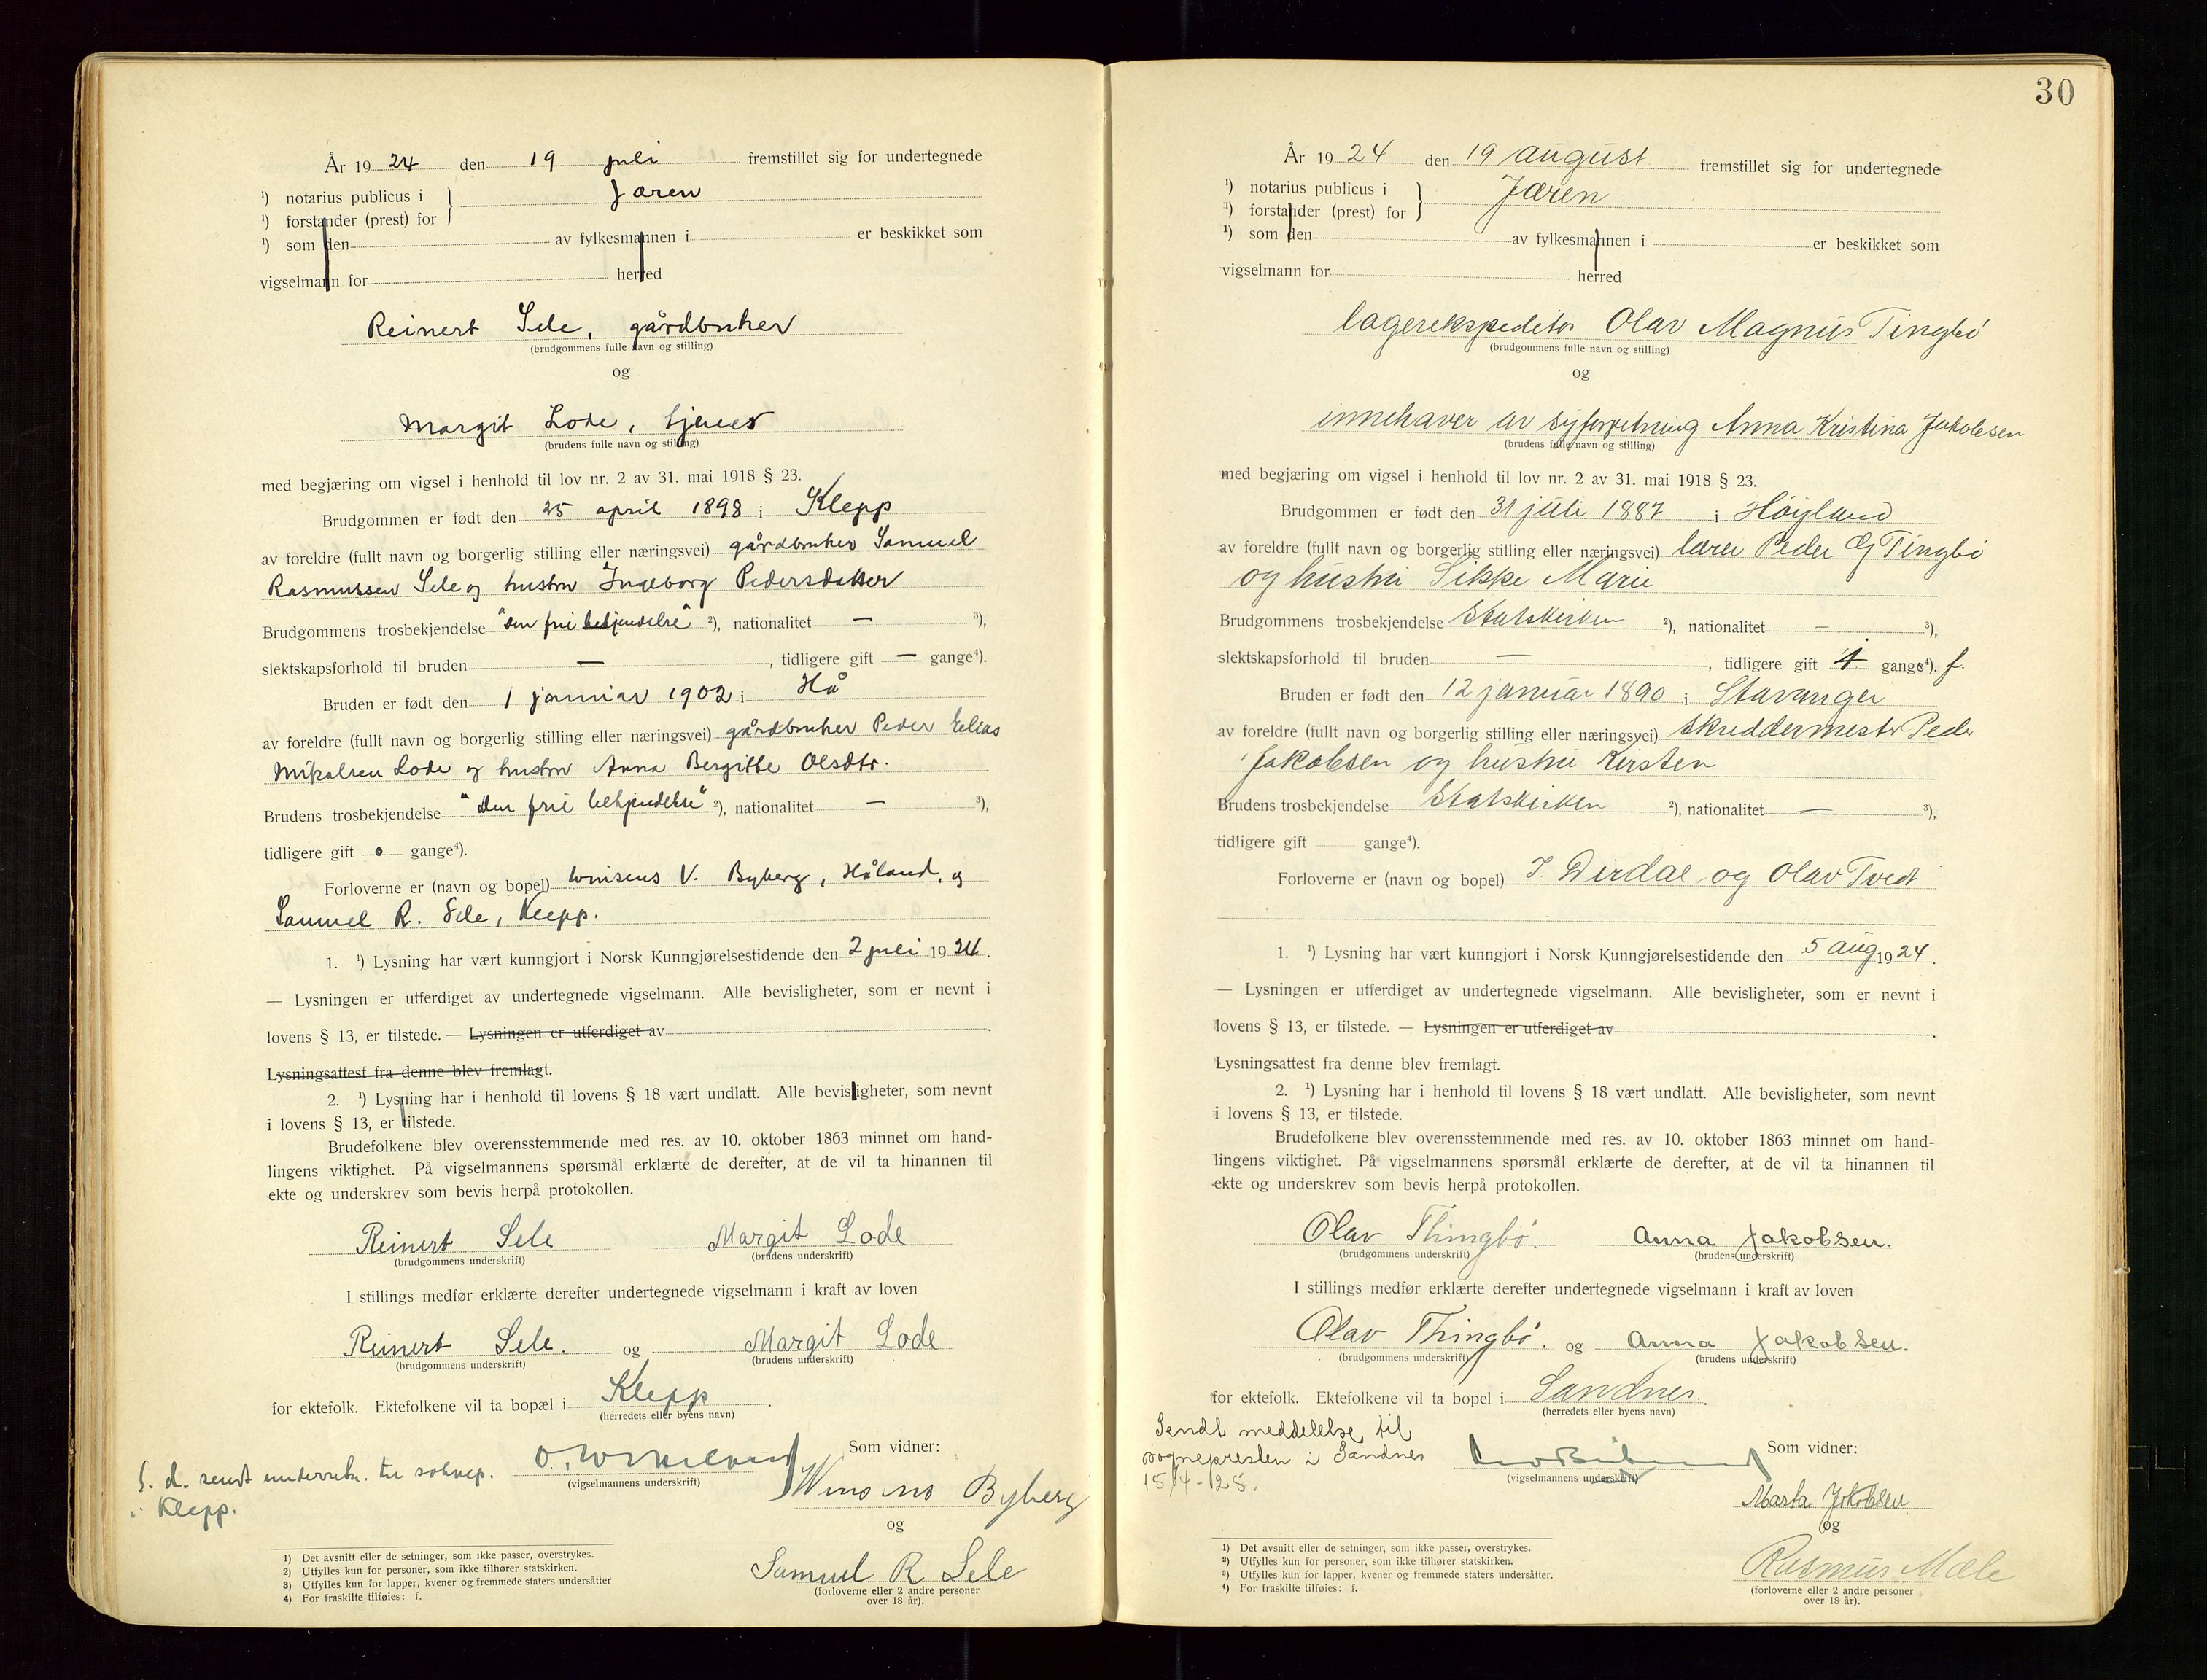 År 19 24 den 19 juli fremstillet sig for undertegnede
¹) notarius publicus i } Jæren
¹) forstander (prest) for
¹) som den av fylkesmannen i er beskikket som
vigselmann for herred
Reinert Sele, gårdbruker
(brudgommens fulle navn og stilling)
og
Margit Lode, tjener
(brudens fulle navn og stilling)
med begjæring om vigsel i henhold til lov nr. 2 av 31. mai 1918 § 23.
Brudgommen er født den 25 april 1898 i Klepp
av foreldre (fullt navn og borgerlig stilling eller næringsvei) gårdbruker Samuel
Rasmussen Sele og hustru Ingeborg Pedersdatter
Brudgommens trosbekjendelse "den frie bekjendelse" ²), nationalitet — ³),
slektskapsforhold til bruden — , tidligere gift — gange⁴).
Bruden er født den 1 januar 1902 i Hå
av foreldre (fullt navn og borgerlig stilling eller næringsvei) gårdbruker Peder Elias
Mikalsen Lode og hustru Anna Bergitte Olsdtr.
Brudens trosbekjendelse "Den frie bekjendelse" ²), nationalitet — ³),
tidligere gift 0 gange⁴).
Forloverne er (navn og bopel) V. Byberg, Håland, og
Samuel R. Sele, Klepp.
1. ¹) Lysning har vært kunngjort i Norsk Kunngjørelsestidende den 2 juli 19 24.
— Lysningen er utferdiget av undertegnede vigselmann. Alle bevisligheter, som er nevnt i
lovens § 13, er tilstede. — Lysningen er utferdiget av .
Lysningsattest fra denne blev fremlagt.
2. ¹) Lysning har i henhold til lovens § 18 vært undlatt. Alle bevisligheter, som nevnt
i lovens § 13, er tilstede.
Brudefolkene blev overensstemmende med res. av 10. oktober 1863 minnet om hand-
lingens viktighet. På vigselmannens spørsmål erklærte de derefter, at de vil ta hinannen til
ekte og underskrev som bevis herpå protokollen.
Reinert Sele Margit Lode
(brudgommens underskrift) (brudens underskrift)
I stillings medfør erklærte derefter undertegnede vigselmann i kraft av loven
Reinert Sele. og Margit Lode
(brudgommens underskrift) (brudens underskrift)
for ektefolk. Ektefolkene vil ta bopæl i Klepp .
(herredets eller byens navn)
Som vidner:
S. d. sendt underretn. til soknep.
i Klepp.
(vigselmannens underskrift)
Byberg
og
Samuel R Sele
(forloverne eller 2 andre personer
over 18 år).
1) Det avsnitt eller de setninger, som ikke passer, overstrykes.
2) Utfylles kun for personer, som ikke tilhører statskirken.
3) Utfylles kun for lapper, kvener og fremmede staters undersåtter
4) For fraskilte tilføies: f.
30
År 19 24 den 19 august fremstillet sig for undertegnede
¹) notarius publicus i } Jæren
¹) forstander (prest) for
¹) som den av fylkesmannen i er beskikket som
vigselmann for herred
lagerekspeditør Olav Magnus Tingbø
(brudgommens fulle navn og stilling)
og
innehaver av syforretning Anna Kristina Jakobsen
(brudens fulle navn og stilling)
med begjæring om vigsel i henhold til lov nr. 2 av 31. mai 1918 § 23.
Brudgommen er født den 31 juli 1887 i Høyland
av foreldre (fullt navn og borgerlig stilling eller næringsvei) lærer Peder G Tingbø
og hustru Sikke Marie
Brudgommens trosbekjendelse Statskirken ²), nationalitet — ³),
slektskapsforhold til bruden — , tidligere gift 1 gange⁴). f.
Bruden er født den 12 januar 1890 i Stavanger
av foreldre (fullt navn og borgerlig stilling eller næringsvei) skreddermester Peder
Jakobsen og hustru Kirsten
Brudens trosbekjendelse Statskirken ²), nationalitet — ³),
tidligere gift gange⁴).
Forloverne er (navn og bopel) J. Dirdal og Olav Tvedt
1. ¹) Lysning har vært kunngjort i Norsk Kunngjørelsestidende den 5 aug 19 24.
— Lysningen er utferdiget av undertegnede vigselmann. Alle bevisligheter, som er nevnt i
lovens § 13, er tilstede. — Lysningen er utferdiget av .
Lysningsattest fra denne blev fremlagt.
2. ¹) Lysning har i henhold til lovens § 18 vært undlatt. Alle bevisligheter, som nevnt
i lovens § 13, er tilstede.
Brudefolkene blev overensstemmende med res. av 10. oktober 1863 minnet om hand-
lingens viktighet. På vigselmannens spørsmål erklærte de derefter, at de vil ta hinannen til
ekte og underskrev som bevis herpå protokollen.
Olav Thingbø. Anna Jakobsen.
(brudgommens underskrift) (brudens underskrift)
I stillings medfør erklærte derefter undertegnede vigselmann i kraft av loven
Olav Thingbø. og Anna Jakobsen.
(brudgommens underskrift) (brudens underskrift)
for ektefolk. Ektefolkene vil ta bopel i Sandnes.
(herredets eller byens navn)
Sendt meddelelse til
sognepresten i Sandnes
15/4-25.
Som vidner:
(vigselmannens underskrift)
Marta Jakobsen
og
Rasmus Mæle
(forloverne eller 2 andre personer
over 18 år).
1) Det avsnitt eller de setninger, som ikke passer, overstrykes.
2) Utfylles kun for personer, som ikke tilhører statskirken.
3) Utfylles kun for lapper, kvener og fremmede staters undersåtter.
4) For fraskilte tilføies: f.